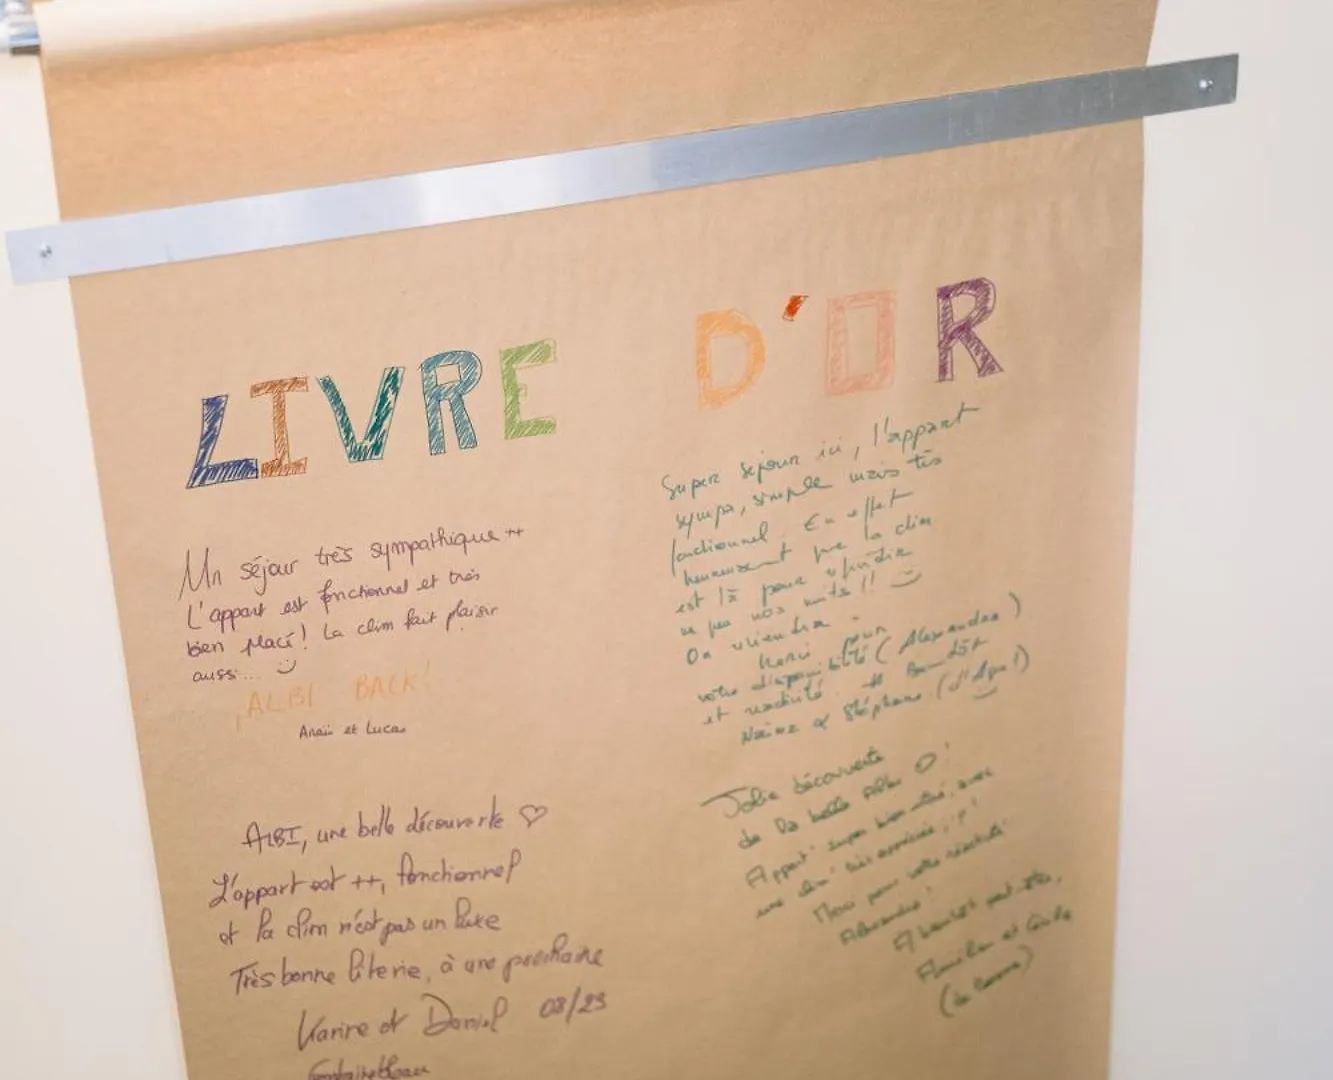 LIVRE D'OR
Un séjour très sympathique ++
L'appart est fonctionnel et très
bien placé! La clim fait plaisir
aussi...
¡ALBI BACK!
Anaïs et Lucas
ALBI, une belle découverte ♡
L'appart est ++, fonctionnel
et la clim n'est pas un luxe
Très bonne literie, à une prochaine
Karine et Daniel 08/23
Fontainebleau
Super séjour ici, l'appart
sympa, simple mais très
fonctionnel. En effet
heureusement que la clim
est là pour
nos nuits!!
On viendra
Merci pour
votre disponibilité (Alexandra)
et réactivité. A Bientôt
& Stéphane (d'Agen!)
Jolie découverte
de la belle Albi O!
Appart' super bien situé, avec
une clim' très appréciée
Merci pour votre réactivité
Alexandra!
A bientôt peut-être,
et